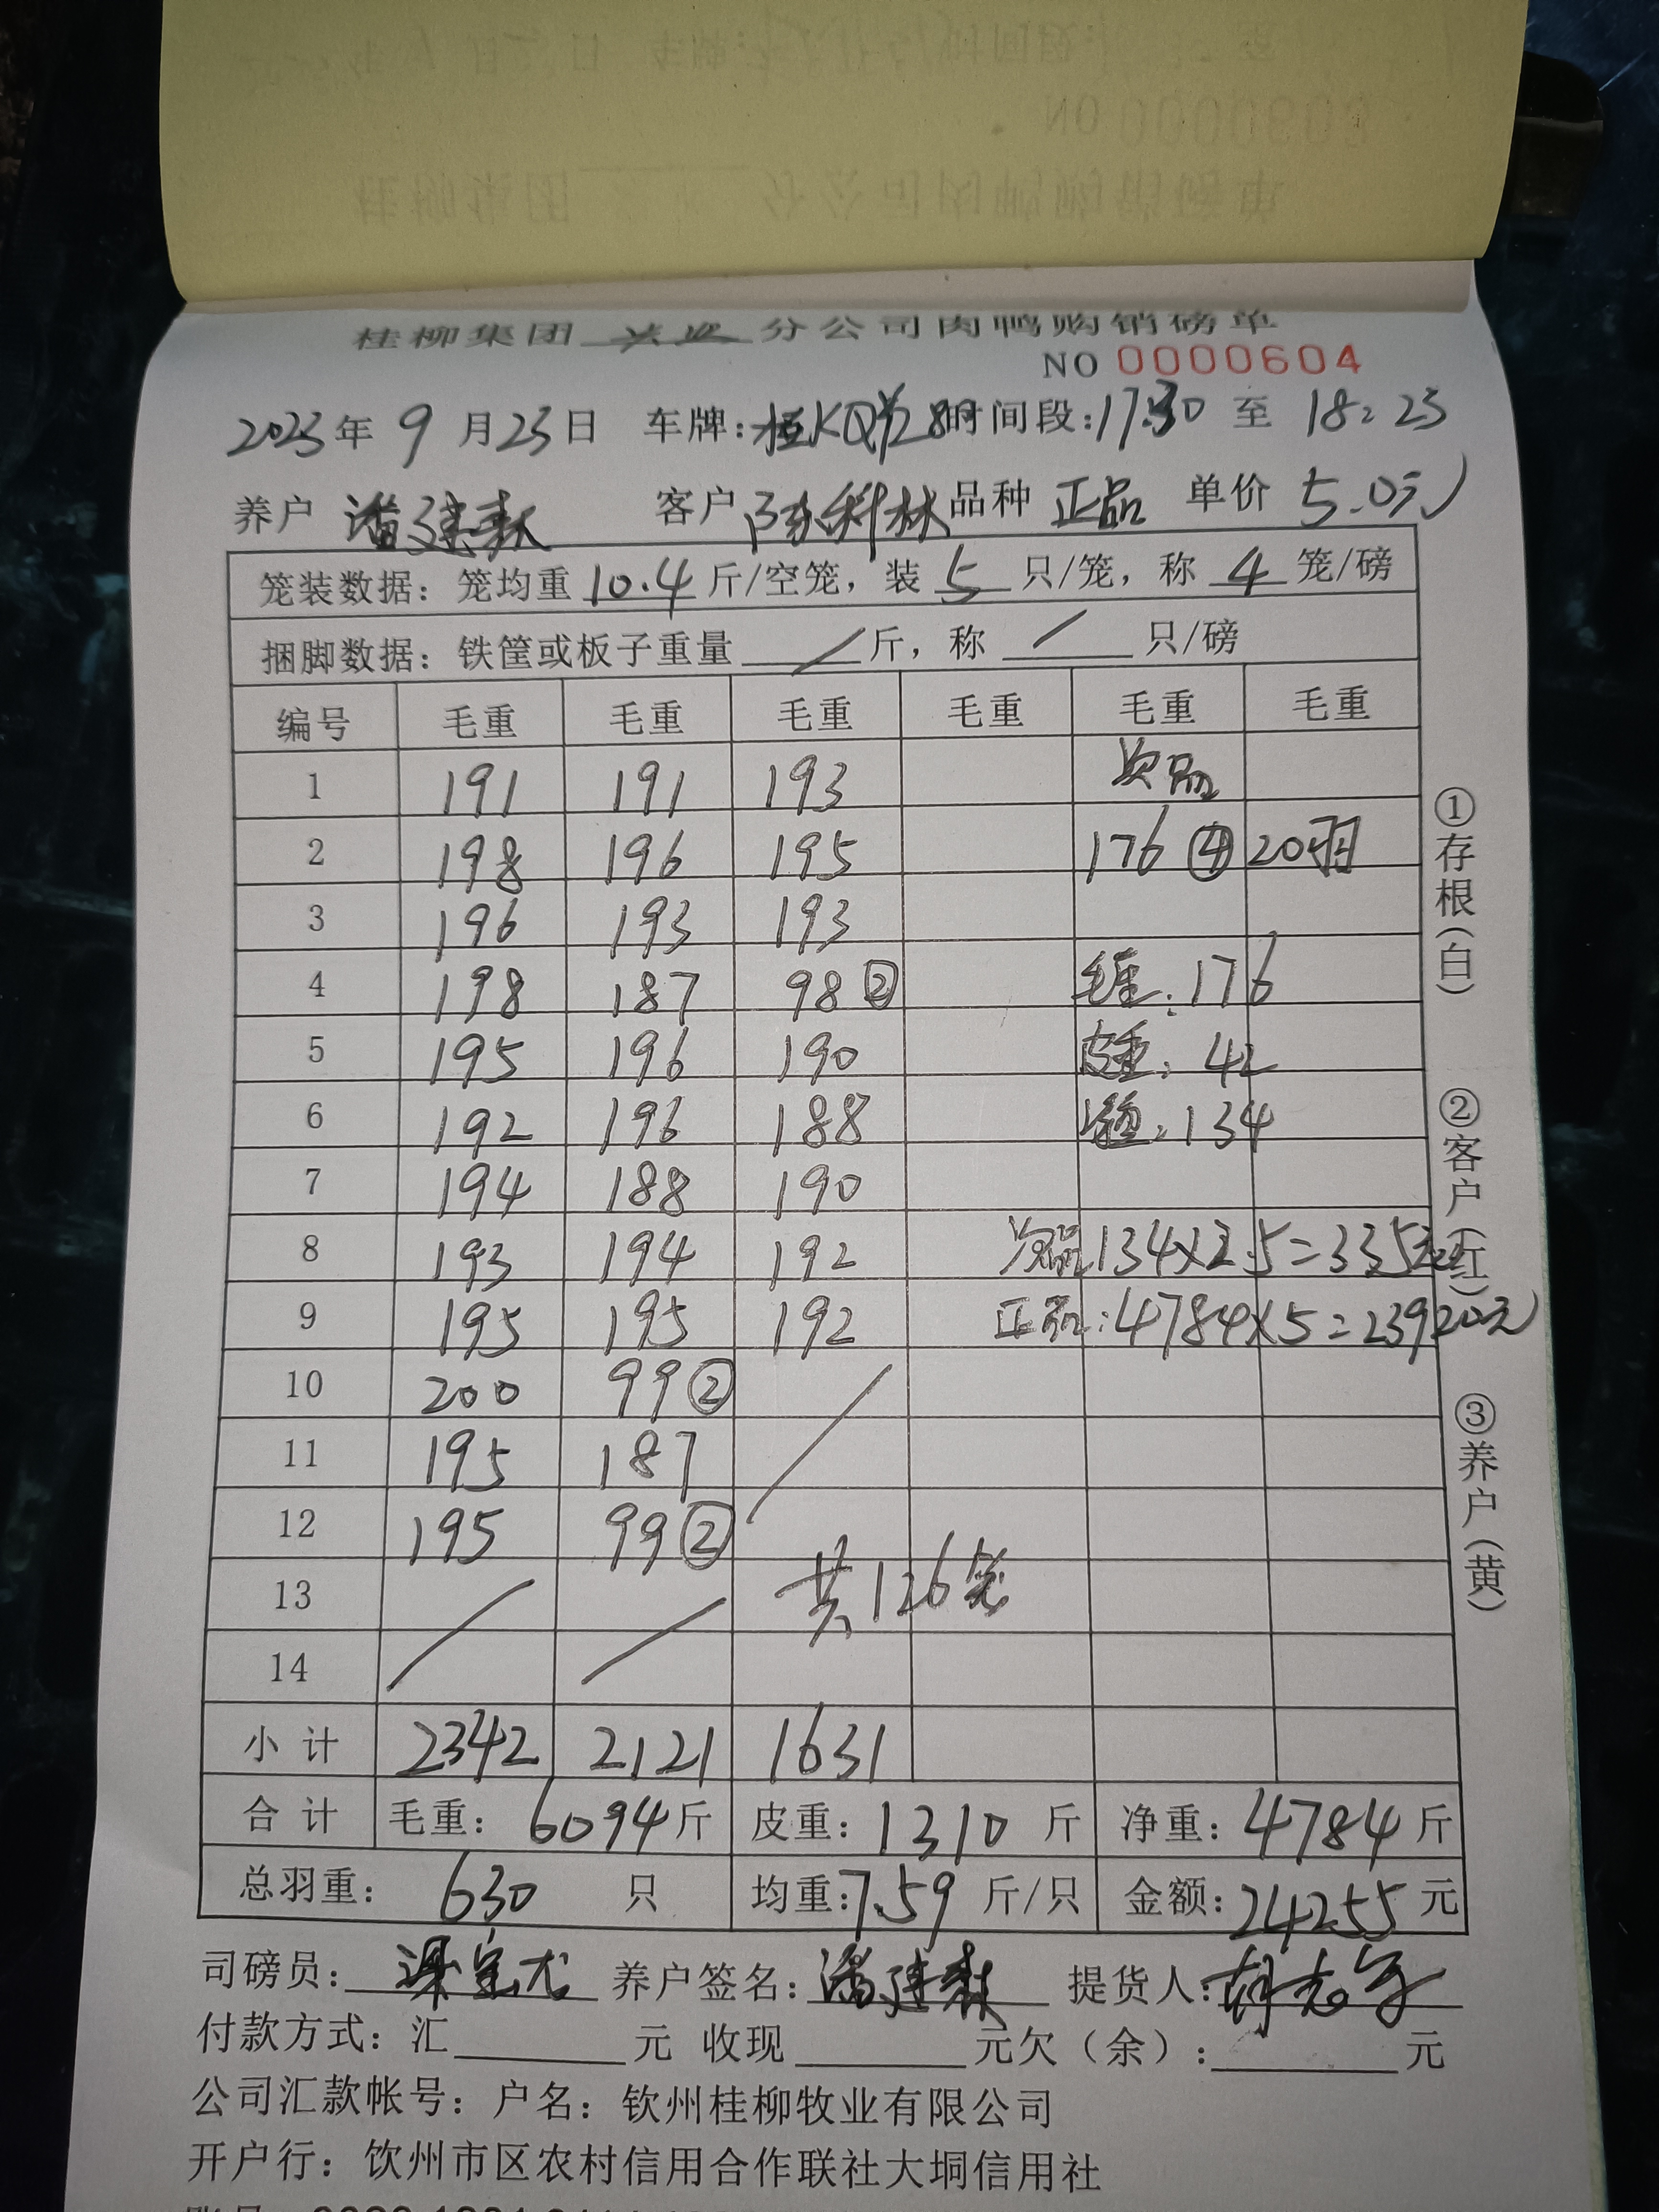 桂柳集团 兴业 分公司肉鸭购销磅单
NO 0000604
2023年 9 月23日 车牌: 时间段:17:30 至 18:23
养户 潘建 客户 陈科林 品种 正品 单价 5.0元
笼装数据: 笼均重 10.4 斤/空笼, 装 5 只/笼, 称 4 笼/磅
捆脚数据: 铁筐或板子重量 / 斤, 称 / 只/磅
编号 毛重 毛重 毛重 毛重 毛重 毛重
1 191 191 193 次品
2 198 196 195 176 ④ 20羽
3 196 193 193
4 198 187 98 ② 毛重: 176
5 195 196 190 皮重: 42
6 192 196 188 净重: 134
7 194 188 190
8 193 194 192 次品 134×2.5=335元
9 195 195 192 正品: 4784×5=23920元
10 200 99 ②
11 195 187
12 195 99 ②
13 共126笼
14
小 计 2342 2121 1631
合 计 毛重: 6094 斤 皮重: 1310 斤 净重: 4784 斤
总羽重: 630 只 均重: 7.59 斤/只 金额: 24255 元
司磅员: 养户签名: 潘建 提货人: 胡志
付款方式: 汇 元 收现 元欠(余): 元
公司汇款帐号: 户名: 钦州桂柳牧业有限公司
开户行: 钦州市区农村信用合作联社大垌信用社
①存根(白)
②客户(红)
③养户(黄)